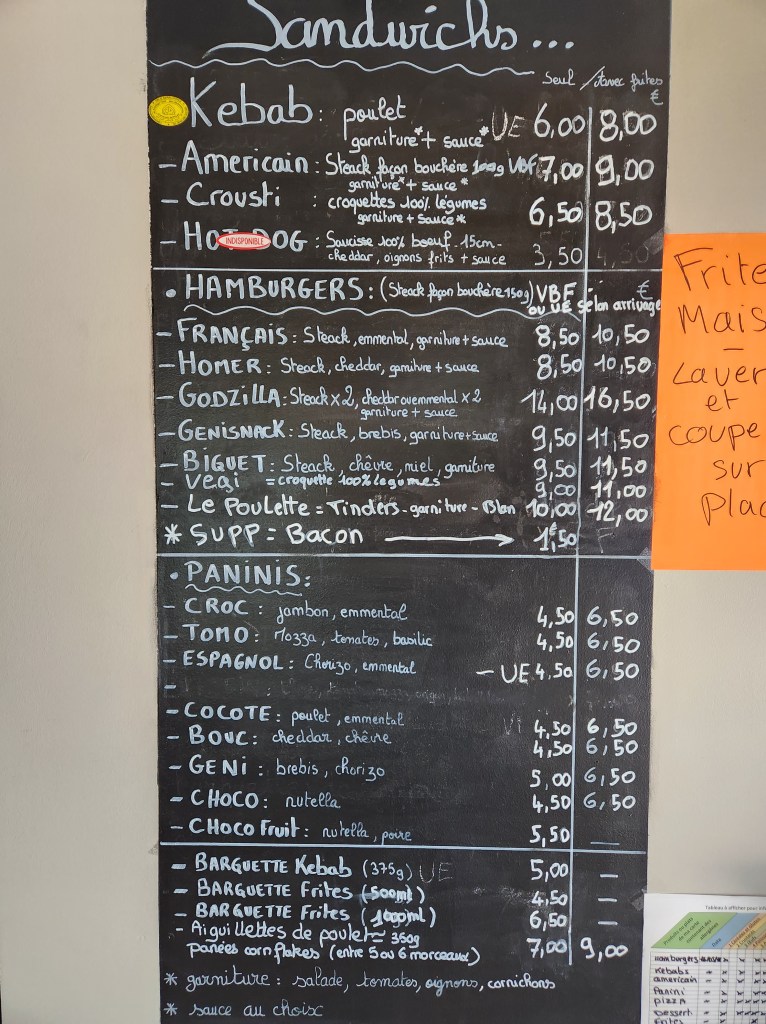 Sandwichs...
Seul / Avec frites
€
Kebab : poulet UE 6,00 8,00
garniture* + sauce*
- Americain : Steack façon bouchère 100g VBF 7,00 9,00
garniture* + sauce*
- Crousti : croquettes 100% légumes 6,50 8,50
garniture + sauce*
- HOT DOG : Saucisse 100% boeuf - 15cm - 3,50 4,50
INDISPONIBLE
cheddar, oignons frits + sauce
• HAMBURGERS : (Steack façon bouchère 150g) VBF - €
ou UE selon arrivage
- FRANÇAIS : Steack, emmental, garniture + sauce 8,50 10,50
- HOMER : Steack, cheddar, garniture + sauce 8,50 10,50
- GODZILLA : Steack x 2, cheddar ou emmental x 2 14,00 16,50
garniture + sauce
- GENISNACK : Steack, brebis, garniture + sauce 9,50 11,50
- BIGUET : Steack, chèvre, miel, garniture 9,50 11,50
- Vegi = croquette 100% legumes 9,00 11,00
- Le Poulette = Tinders - garniture - Blan 10,00 12,00
* SUPP = Bacon → 1,50
€
• PANINIS :
- CROC : jambon, emmental 4,50 6,50
- TOMO : Mozza, tomates, basilic 4,50 6,50
- ESPAGNOL : Chorizo, emmental - UE 4,50 6,50
-
- COCOTE : poulet, emmental 4,50 6,50
- BOUC : cheddar, chèvre 4,50 6,50
- GENI : brebis, chorizo 5,00 6,50
- CHOCO : nutella 4,50 6,50
- CHOCO Fruit : nutella, poire 5,50 —
- BARGUETTE Kebab (375g) UE 5,00 —
- BARGUETTE Frites (500ml) 4,50 —
- BARGUETTE Frites (1000ml) 6,50 —
- Aiguillettes de poulet = 350g
panées corn flakes (entre 5 ou 6 morceaux) 7,00 9,00
* garniture : salade, tomates, oignons, cornichons
* sauce au choix
Frite
Mais
-
Laver
et
coupe
sur
plac
Tableau à afficher pour inf
Hamburgers
Kebabs
americain
Panini
pizza
Dessert
Frites